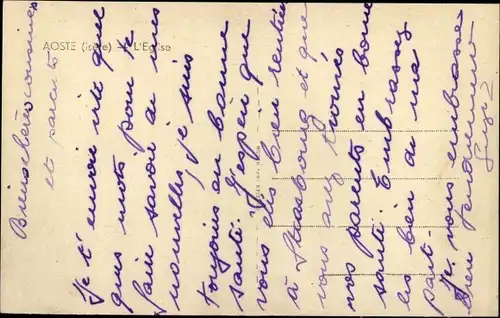 AOSTE (Isère) - L'Église
Bien chères cousines
et parents
Je t'envoie vite quel
ques mots pour te
faire savoir de mes
nouvelles, je suis
toujours en bonne
santé. J'espère que
vous êtes bien rentrées
à Strasbourg et que
vous avez trouvés
nos parents en bonne
santé. Embrassez
les bien de ma
part.
Je vous embrasse
bien tendrement